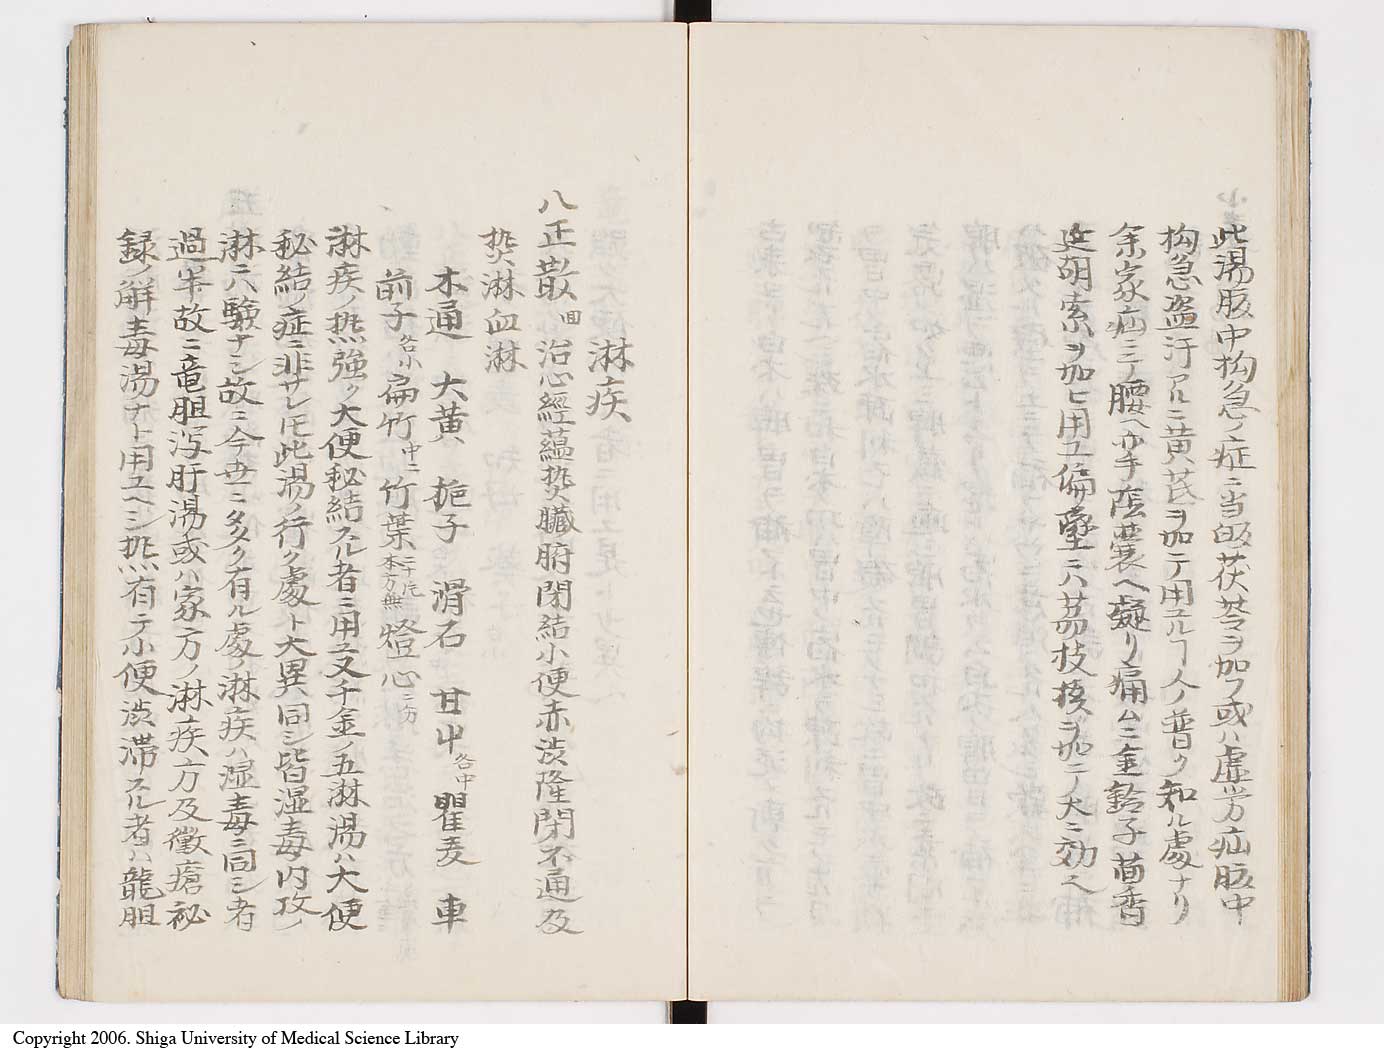 此湯腹中拘急ノ症ニ当皈茯苓ヲ加フ或ハ虚労疝腹中
拘急盗汗アルニ黄芪ヲ加テ用ユルヿ人ノ普ク知ル處ナリ
余家疝ニテ腰ヘ亦手陰嚢ヘ凝リ痛ムニ金鈴子茴香
延胡索ヲ加ヒ用ユ偏墜ニハ茘枝核ヲ加ニテ大ニ効ヘ
淋疾
八正散 回 治心經蘊𤍠臓腑閉結小便赤渋隆閉不通及
𤍠淋血淋
木通 大黄 梔子 滑石 甘中 各中 瞿麦 車
前子 各小 扁竹 中二 竹葉 本方無 燈心 二分
淋疾ノ𤍠強ク大便秘結スル者ニ用ユ又千金ノ五淋湯ハ大便
秘結ノ症ニ非サレ𪜈此湯ノ行ク處ト大異同シ皆湿毒内攻ノ
淋ニハ驗ナシ故ニ今世ニ多ク有ル處ノ淋疾ハ湿毒ニ同シ者
過半故ニ竜胆瀉肝湯或ハ家方ノ淋疾方及黴瘡祕
録ノ解毒湯ナト用ユヘシ𤍠有テ小便渋滞スル者ハ龍胆
Copyright 2006. Shiga University of Medical Science Library